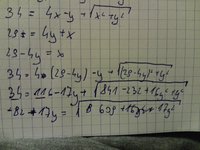 34 = 4x-y + √x²+y²
29 = 4y+x
29-4y = x
34 = 4*(29-4y) -y + √(29-4y)²+y²
34 = 116-17y + √841-232+16y²+y²
-82+17y = √ 609+